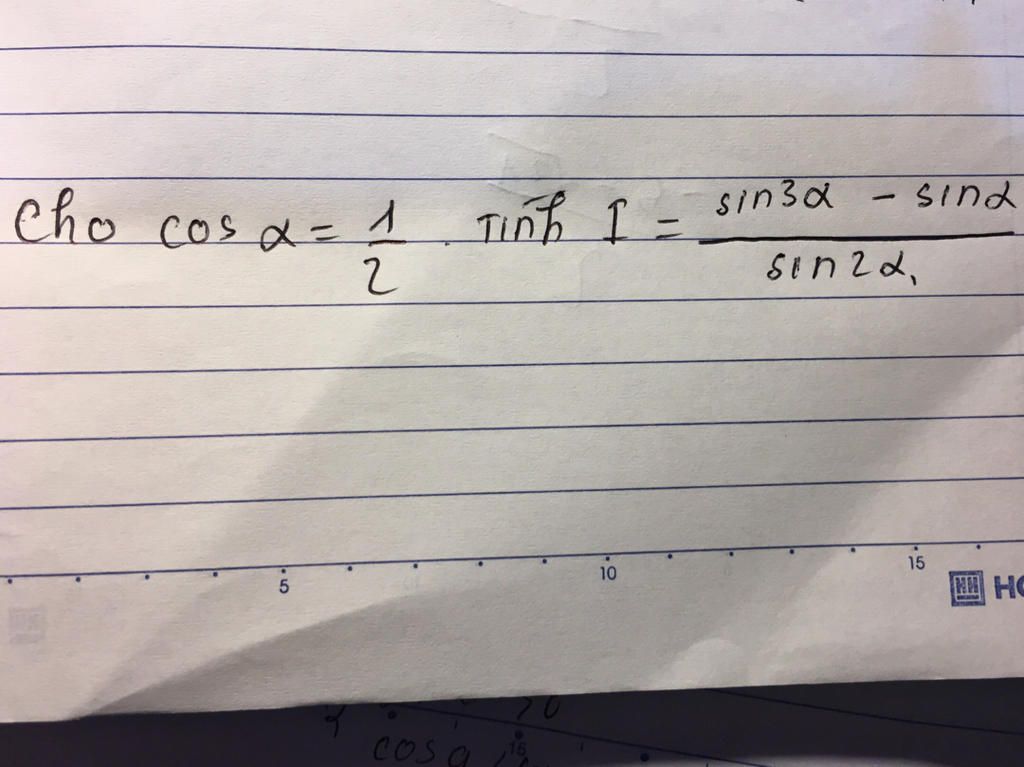 Cho cos α = 1/2 . Tính I = (sin3α - sinα)/(sin2α)
5 10 15
HH